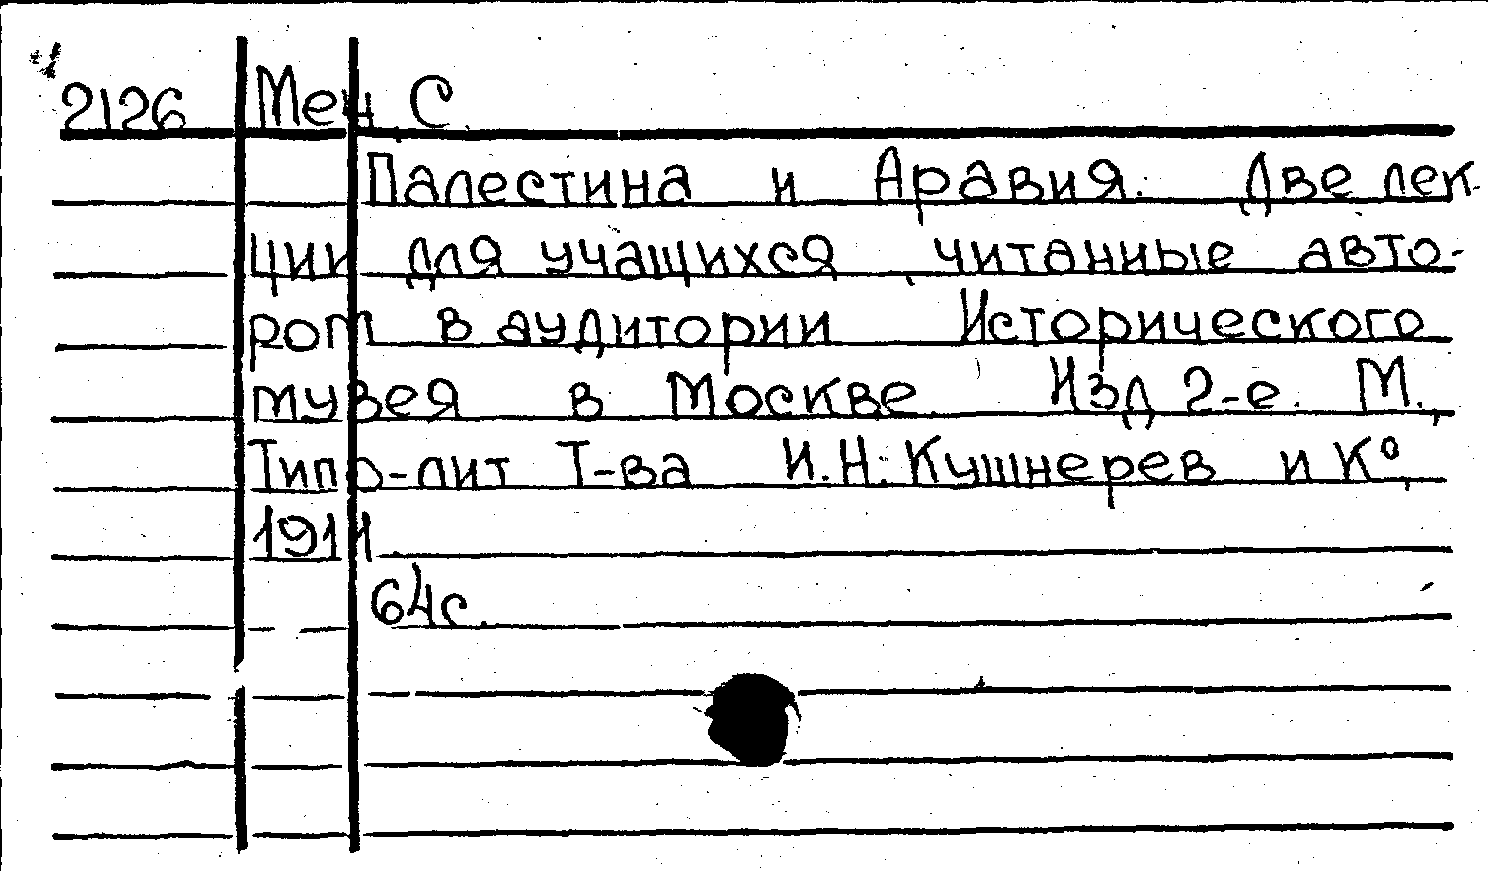 2126 Меч С.
Палестина и Аравия. Две лек-
ции для учащихся, читанные авто-
ром в аудитории Исторического
музея в Москве. Изд 2-е. М.,
Типо-лит Т-ва И.Н. Кушнерев и К°,
1911.
64с.